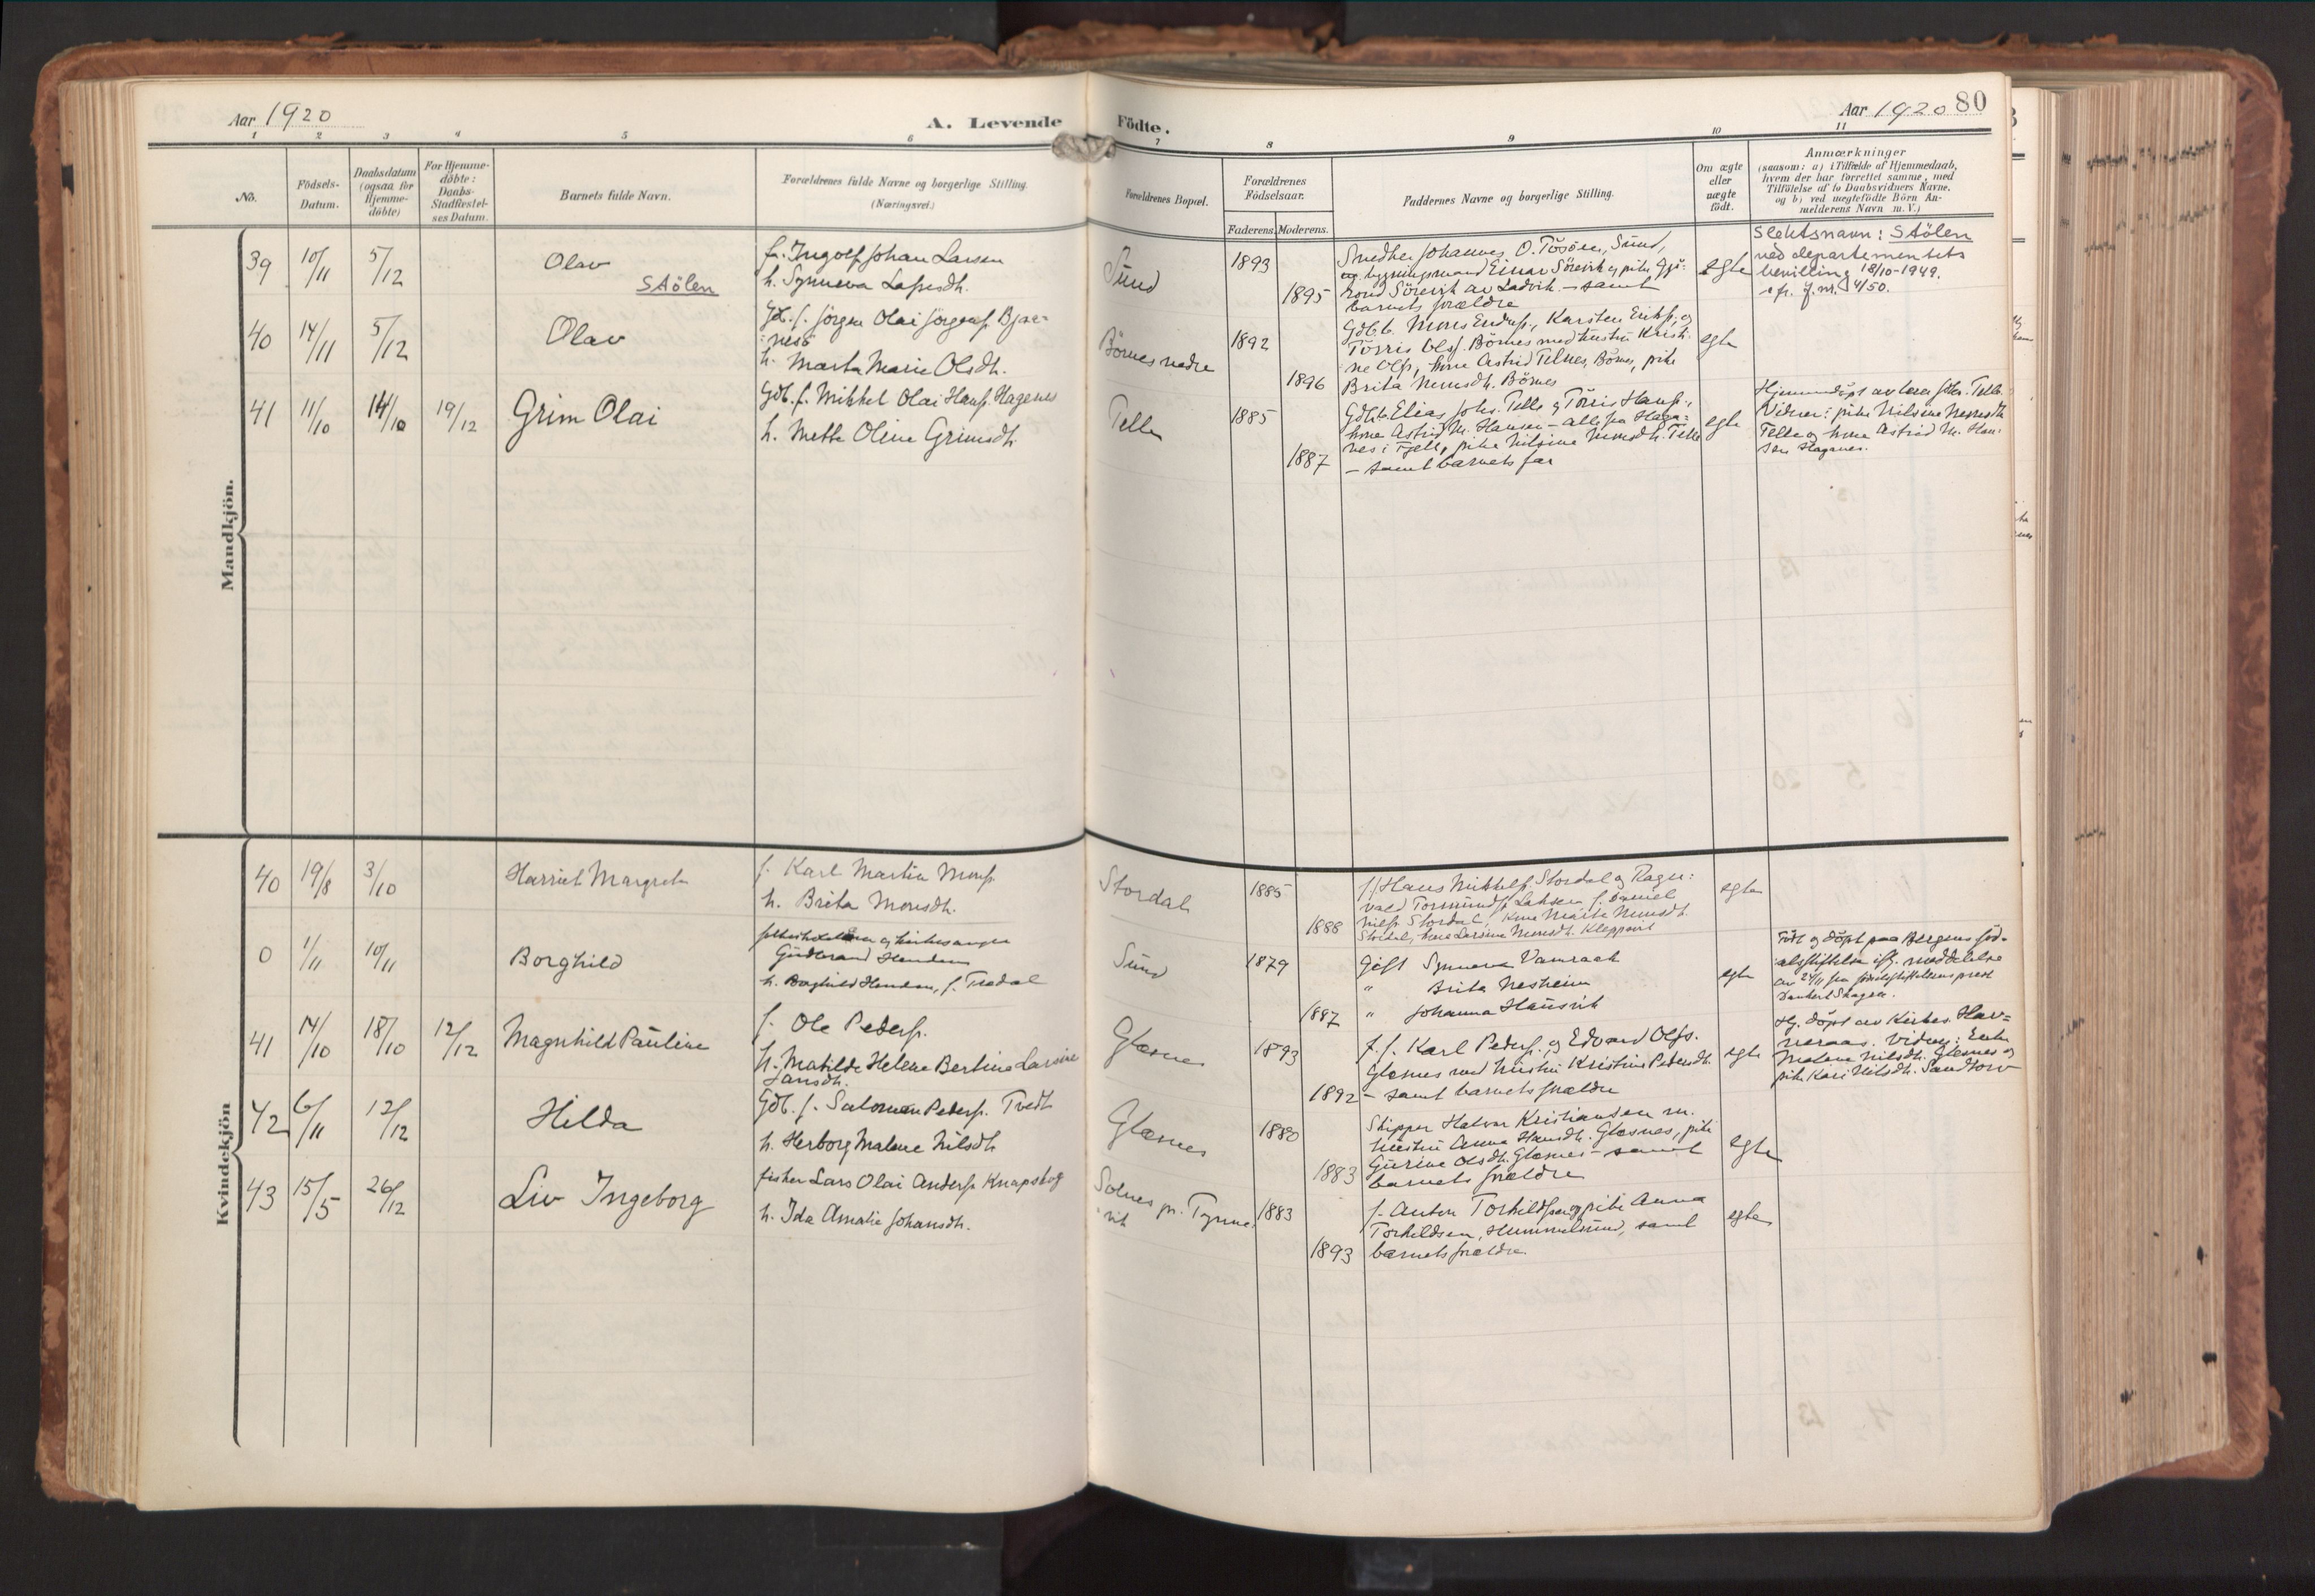 Aar 1920
A. Levende
Födte.
Aar 1920
80
1 2 3 4 5 6 7 8 9 10 11
No.
Födsels-
Datum.
Daabsdatum
(ogsaa for
Hjemme-
döbte)
For Hjemme-
döbte:
Daabs-
Stadfæstel-
ses Datum.
Barnets fulde Navn.
Forældrenes fulde Navne og borgerlige Stilling.
(Næringsvei.)
Forældrenes Bopæl.
Forældrenes
Födselsaar.
Faderens. Moderens.
Faddernes Navne og borgerlige Stilling.
Om ægte
eller
uægte
födt.
Anmærkninger
(saasom: a) i Tilfælde af Hjemmedaab,
hvem der har forrettet samme, med
Tilföielse af to Daabsvidners Navne,
og b) ved uægtefödte Börn An-
melderens Navn m. V.)
Mandkjön.
39 10/11 5/12
Olav
Stölen
Ingolf Johan Larsen
h. Synneva Lassesdh.
Sund
1893
1895
Smedhe Johannes O. Tösöen, Sund,
og bygningsmand Einar Sörevik og pike
Sörevik av Ladvik. – samt
barnets forældre
egte
Slektsnavn: Stölen
ved departementets
bevilling 18/10-1949.
cfr. j.nr. 4/50.
40 14/11 5/12
Olav
Gdb. f. Jörgen Olai Jörgens. Bjar=
nesö
h. Marta Marie Olsdh.
Börnes nedre
1892
1896
Gdbb. Mons Enduss., Karsten Erikss. og
Törris Olss. Börnes med hustru Kristi-
ne Ols, kone Astrid Telnes, Börnes, pike
Brita Monsdh. Börnes
egte
41 11/10 14/10 19/12
Grim Olai
Gdb. f. Mikkel Olai Hanss. Hagenes
h. Mette Oline Grimsdh.
Telle
1885
1887
Gdbb. Elias Johs. Telle og Törris Hanss.,
kone Astrid M. Hansen – alle fra Hage=
nes i Fjell, pike Nilsine Monsdh. Telle
– samt barnets far
egte
Hjemmedöpt av Johs. Telle.
Vidner: pike Nilsine Monsdh.
Telle og kone Astrid M. Han-
sen Hagenes.
Kvindekjön
40 19/8 3/10
Harriet Margrete
f. Karl Martin Monss.
h. Brita Monsdh.
Stordal
1885
1888
f.f. Hans Mikkels. Stordal og Ragn=
vald Tormunds. Laksen, f. Daniel
Nilss. Stordal, kone Marta Monsdh.
Stordal, kone Larsine Monsdh. Kleppevit
egte
0 1/11 10/11
Borghild
og kirkesanger
Gudbrand Hendens
h. Borghild Hendens, f. Tredal
Sund
1879
1887
Gift Synneva Vamraak
" Brita Nesheim
" Johanna Hausvik
egte
Födt og döpt paa Bergens föd-
selsstiftelse ifg. meddelelse
av 24/11 fra födselsstiftelsens prest
Dankert Skagen.
41 14/10 18/10 12/12
Magnhild Pauline
f. Ole Peders.
h. Matilde Helene Bertine Larsine
Jansdh.
Glesnes
1893
1892
f.f. Karl Peders. og Edvard Olss.
Glesnes med hustru Kristine Pedersdh.
– samt barnets forældre
egte
Hj. döpt av Kirkes. Hav=
neraas. Vidner: Enke
Malene Nilsdh. Glesnes og
pike Kari Nilsdh. Sandtorv
42 6/11 12/12
Hilda
Gdb. f. Salomon Peders. Tvedt
h. Herborg Malene Nilsdh
Glesnes
1880
1883
Skipper Halvar Kristiansen m.
hustru Anna Hansdh. Glesnes, pike
Gurine Olsdh. Glesnes – samt
barnets forældre
egte
43 15/5 26/12
Liv Ingeborg
fisker Lars Olai Anderss. Knapskog
h. Ida Amalie Johansdh.
Solnes pr. Tynne-
vik
1883
1893
f. Anton Torkildsen og pike Anna
Torkildsen, Hummelsund, samt
barnets forældre.
egte